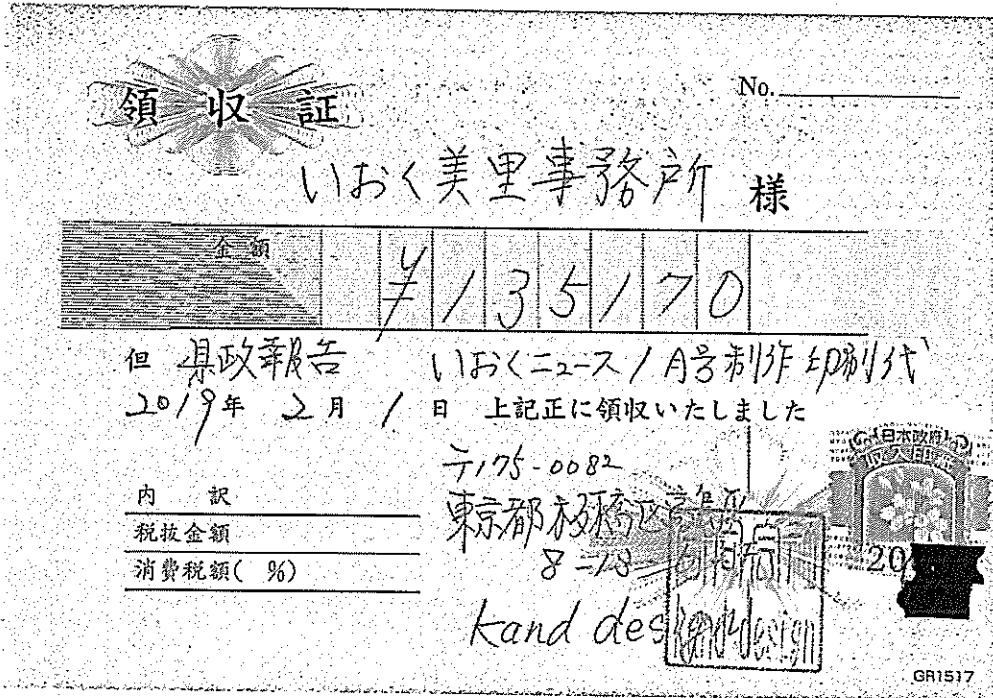 領収証
No.
いおく美里事務所 様
金額 ¥135170
但 県政報告 いおくニュース1月号制作印刷代
2019年 2月 1日 上記正に領収いたしました
〒175-0082
内訳
東京都板橋区高島平
税抜金額
8-18
消費税額( %)
kand design
日本政府
収入印紙
20
GR1517